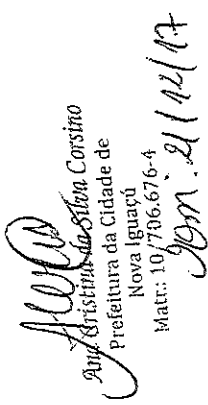 Ana Cristina da Silva Corsino
Prefeitura da Cidade de
Nova Iguaçú
Matr.: 10/706.676-4
Em: 21/12/17